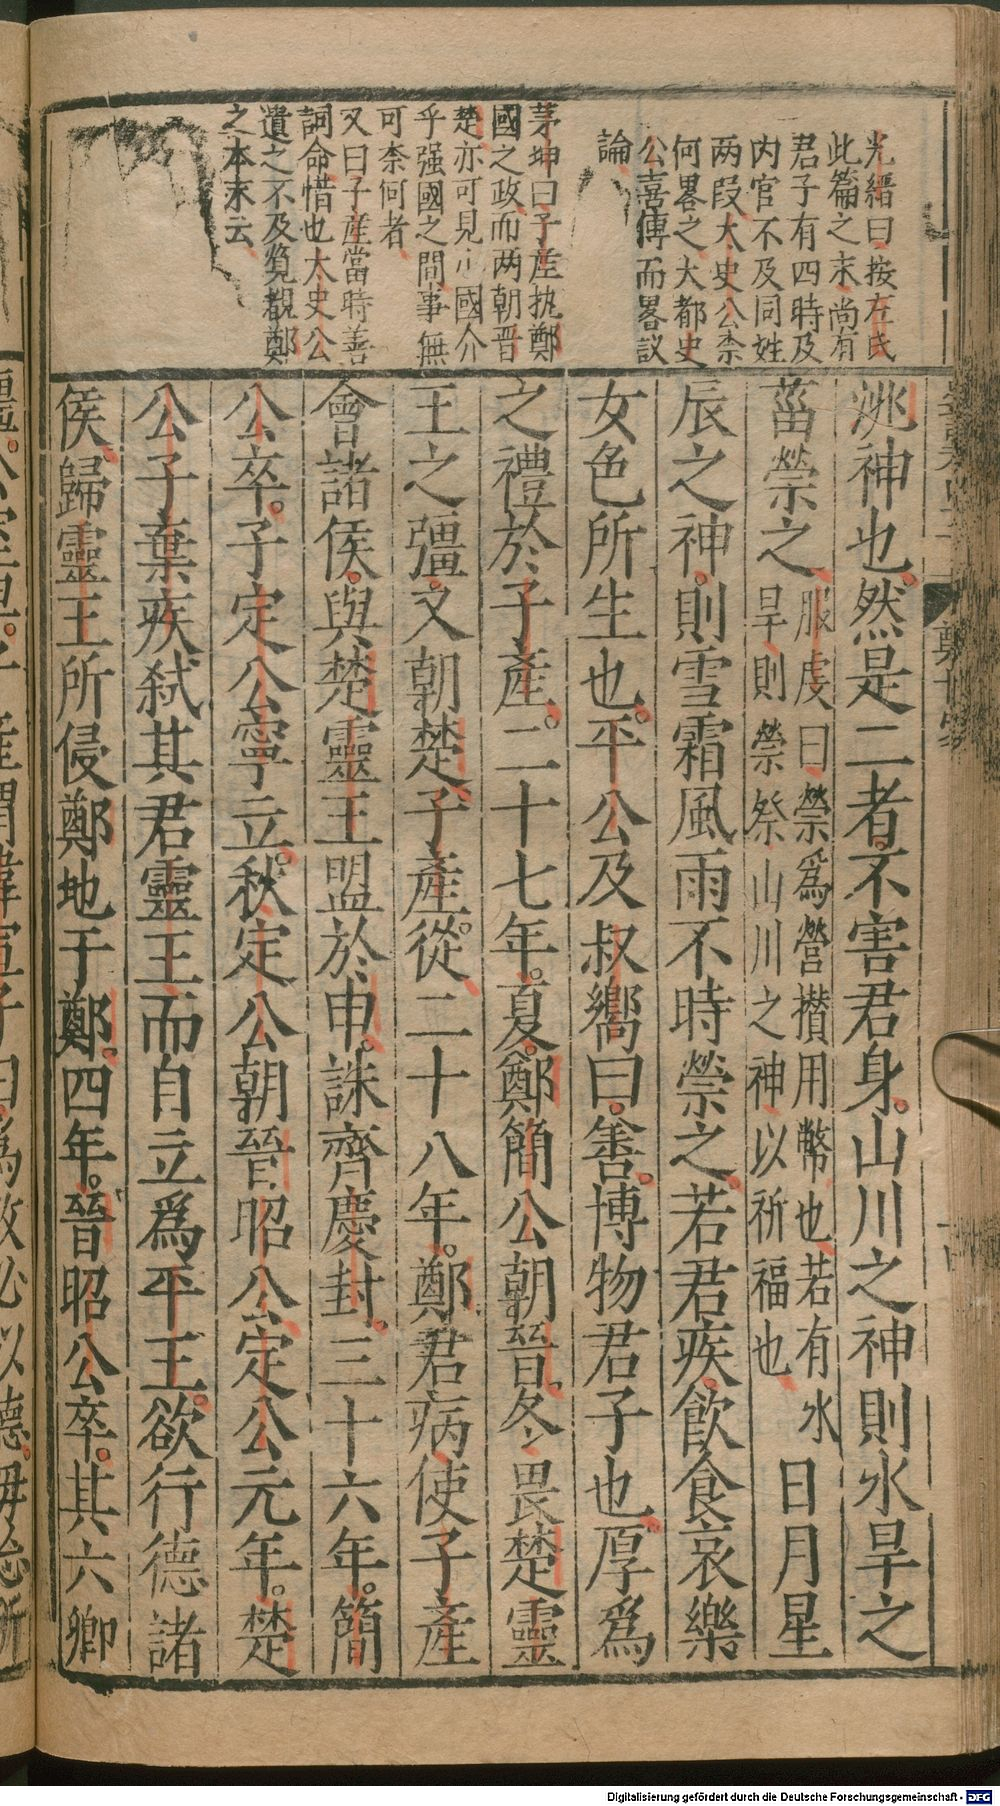 光縉曰按左氏
此篇之末尚有
君子有四時及
内官不及同姓
两段大史公柰
何畧之大都史
公喜傳而畧議
論
茅坤曰子産执鄭
國之政而两朝晋
楚亦可見小國介
乎强國之間事無
可柰何者
又曰子産當時善
詞命惜也太史公
遺之不及覧觀鄭
之本末云
洮神也然是二者不害君身山川之神則水旱之
菑禜之
服虔曰禜爲營攅用幣也若有水
旱則禜祭山川之神以祈福也
日月星
辰之神則雪霜風雨不時禜之若君疾飲食哀樂
女色所生也平公及叔嚮曰善博物君子也厚爲
之禮於子產二十七年夏鄭簡公朝晉冬畏楚靈
王之彊又朝楚子產從二十八年鄭君病使子產
會諸侯與楚靈王盟於申誅齊慶封三十六年簡
公卒子定公寧立秋定公朝晉昭公定公元年楚
公子棄疾弑其君靈王而自立爲平王欲行德諸
侯歸靈王所侵鄭地于鄭四年晉昭公卒其六卿
鄭世家
Digitalisierung gefördert durch die Deutsche Forschungsgemeinschaft - DFG